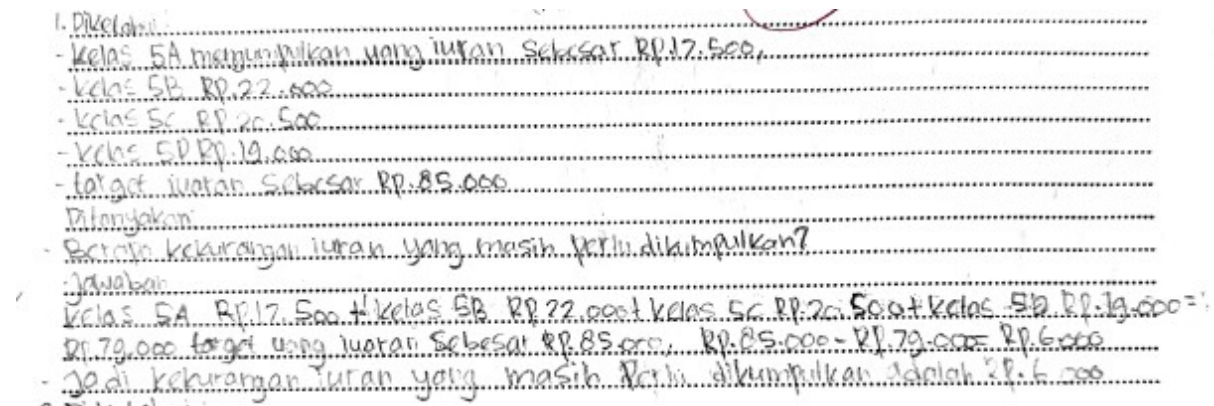 1. Diketahui:
- Kelas 5A mengumpulkan uang iuran sebesar RP.17.500,
- Kelas 5B RP.22.000
- Kelas 5C RP.20.500
- Kelas 5D RP.19.000
- target iuaran sebesar RP.85.000
Ditanyakan:
- Berapa kekurangan iuran yang masih perlu dikumpulkan?
- Jawaban
Kelas 5A RP.17.500 + kelas 5B RP.22.000 + kelas 5C RP.20.500 + kelas 5D RP.19.000 =
RP.79.000 target uang iuaran sebesar RP.85.000, RP.85.000 - RP.79.000 = RP.6.000
- Jadi kekurangan iuran yang masih Perlu dikumpulkan adalah RP.6.000